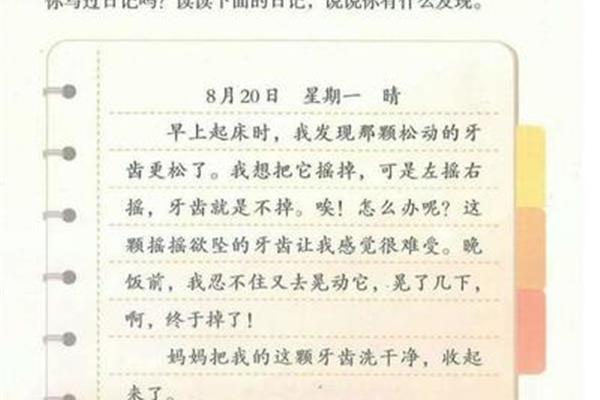 你写过日记吗？读读下面的日记，说说你有什么发现。
8月20日 星期一 晴
早上起床时，我发现那颗松动的牙
齿更松了。我想把它摇掉，可是左摇右
摇，牙齿就是不掉。唉！怎么办呢？这
颗摇摇欲坠的牙齿让我感觉很难受。晚
饭前，我忍不住又去晃动它，晃了几下，
啊，终于掉了！
妈妈把我的这颗牙齿洗干净，收起
来了。